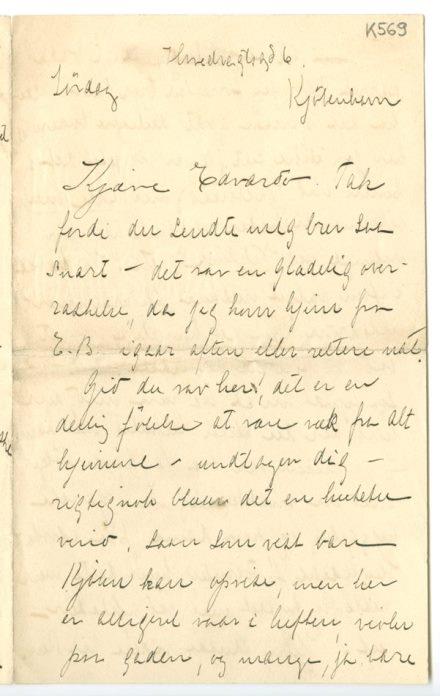 K569
Hvedevigtsgd 6.
Søndag
Kjöbenhavn
Kjære Edvardo. Tak
fordi du sendte meg brev saa
snart – det var en glædelig over-
raskelse, da jeg kom hjem fra
E.B igaar aften eller rettere nat.
Gid du var her!, det er en
deilig følelse at være væk fra alt
hjemme – undtagen dig –
rigtignok blæser det en
vind, saan som vist bare
Kjöben kan opvise, men her
er alligevel vaar i luften violer
paa gaden, og mange, ja bare